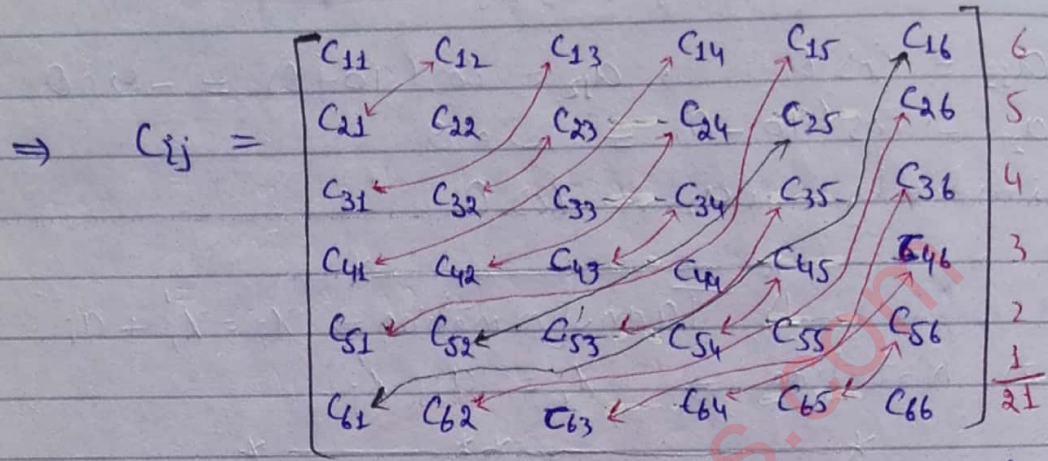 C11 C12 C13 C14 C15 C16 6
C21 C22 C23 C24 C25 C26 5
⇒ Cij =
C31 C32 C33 C34 C35 C36 4
C41 C42 C43 C44 C45 C46 3
C51 C52 C53 C54 C55 C56 2
C61 C62 C63 C64 C65 C66 1
21
s.com